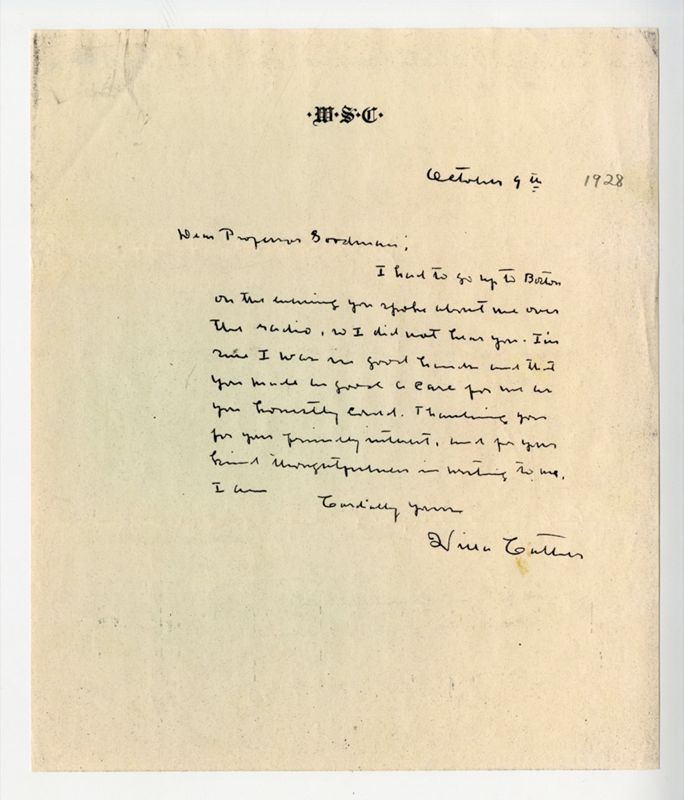 ·W·S·C·
October 9th 1928
Dear Professor Goodman;
I had to go up to Boston
on the evening you spoke about me over
the radio, so I did not hear you. I'm
sure I was in good hands and that
you made as good a case for me as
you honestly could. Thanking you
for your friendly interest, and for your
kind thoughtfulness in writing to me,
I am
Cordially yours
Willa Cather